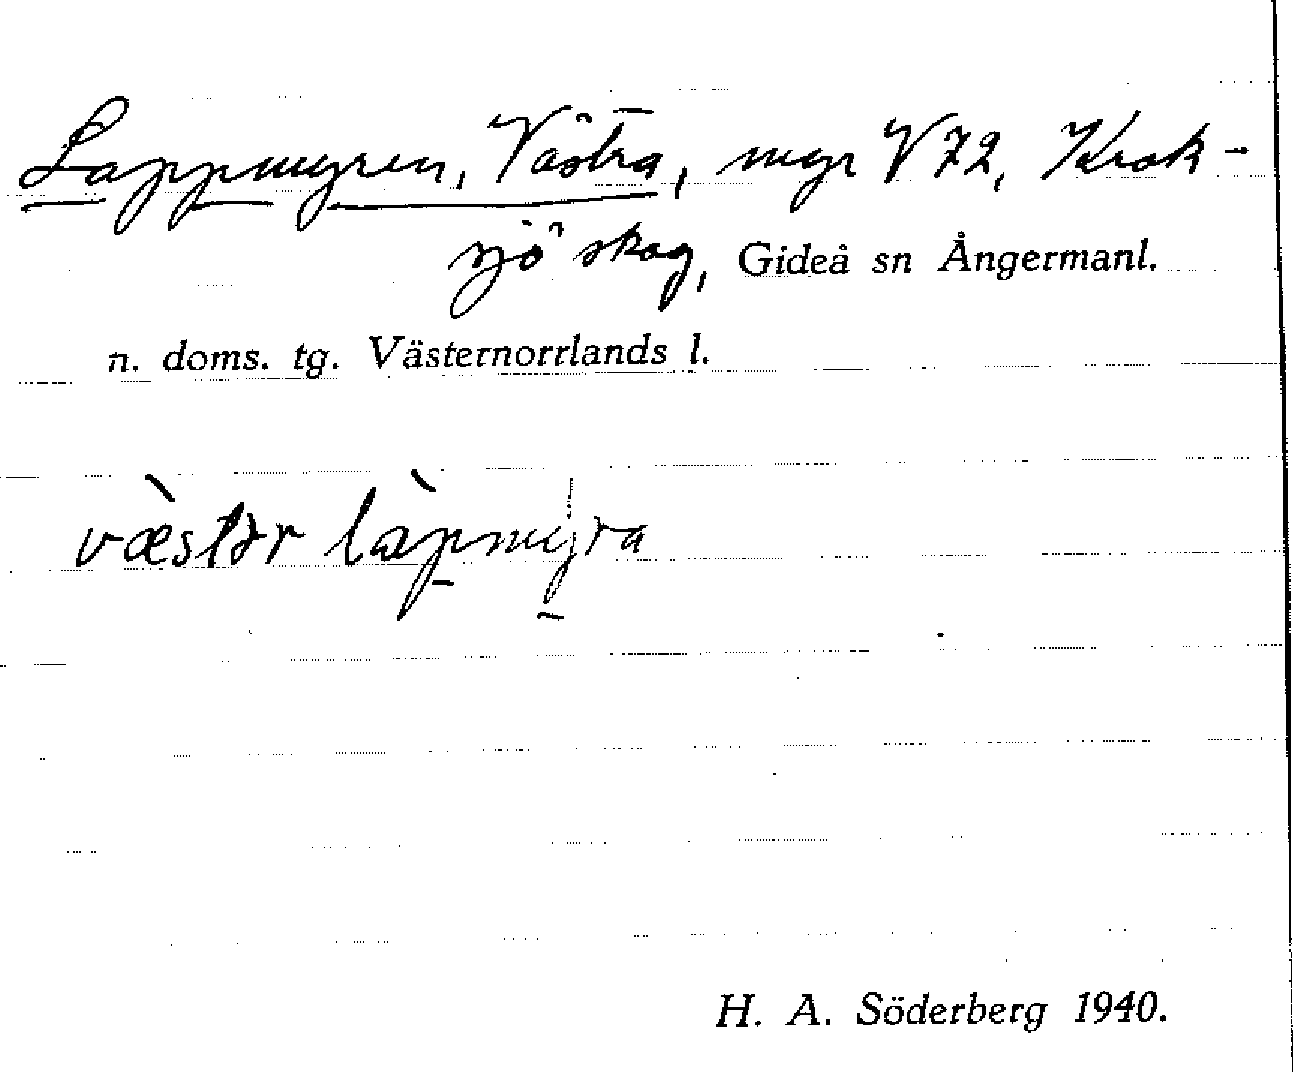 Lappmyren, Västra, myr V72, Krok-
sjö skog, Gideå sn Ångermanl.
n. doms. tg. Västernorrlands l.
væ̀stər làp̠my̠ra
H. A. Söderberg 1940.